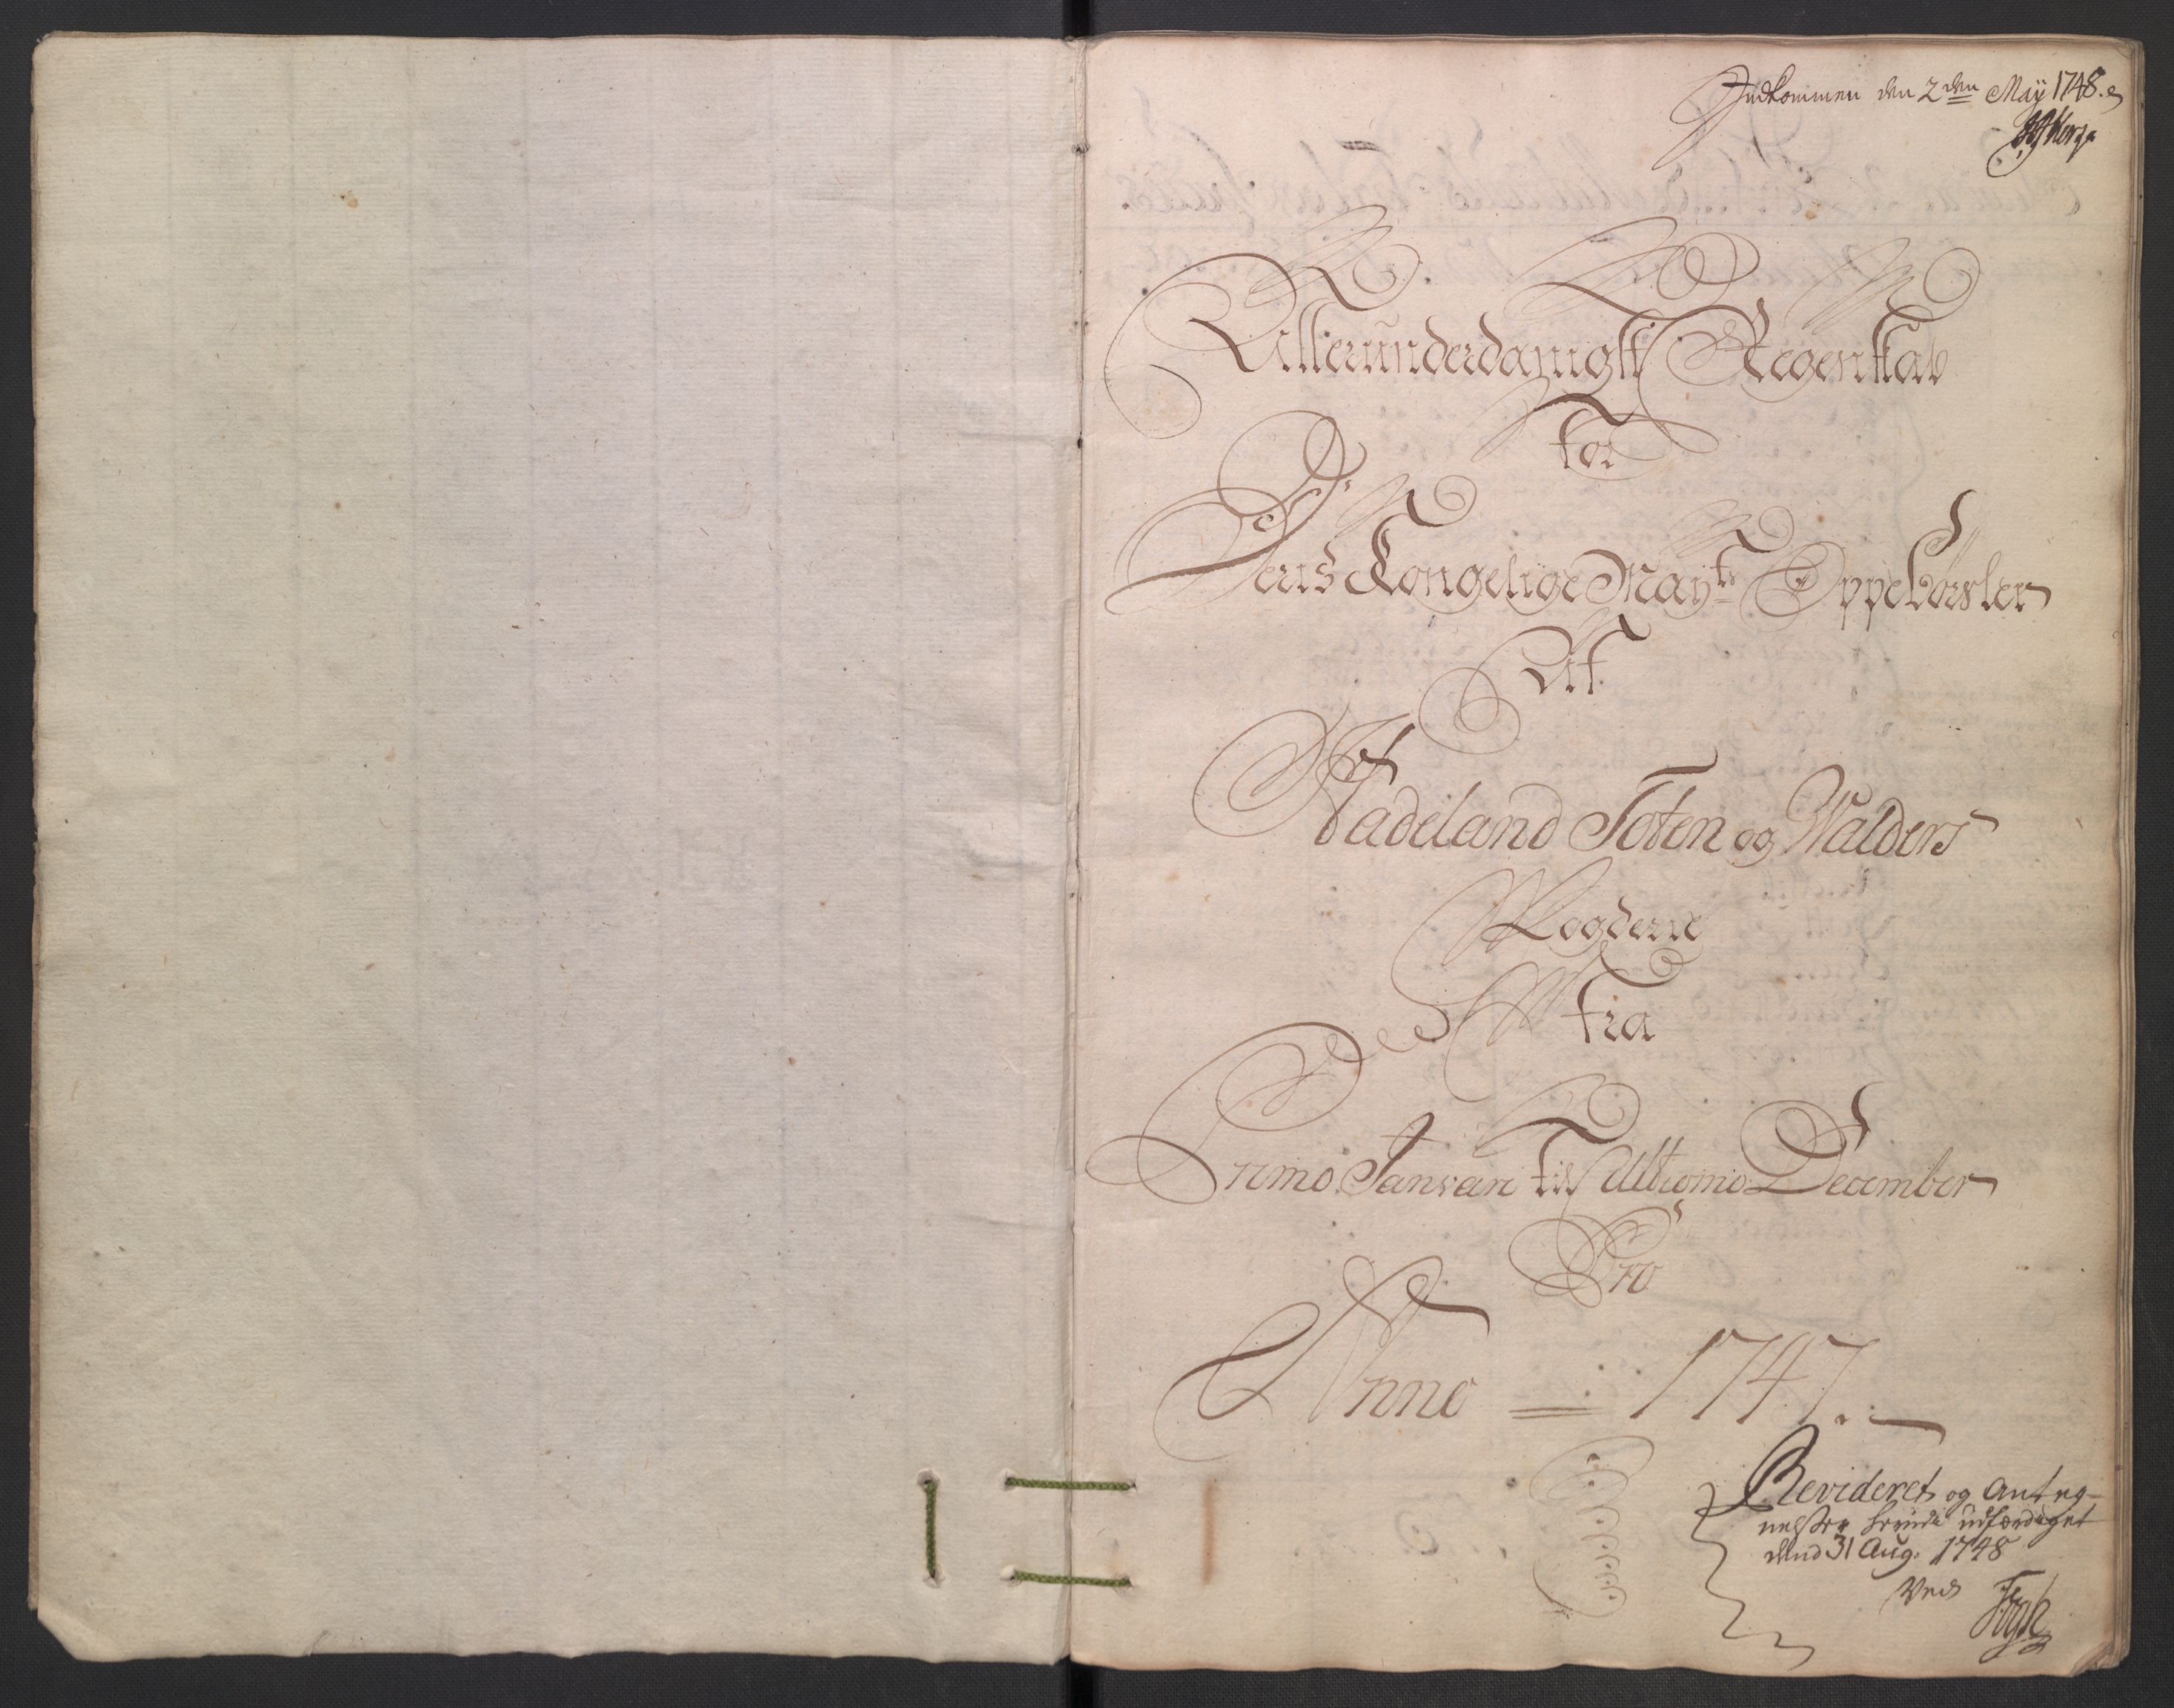 Indkommen den 2den Maÿ 1748.
Allerunderdanigst Regenskab
For
Deris Kongelige Mayts Oppebørsler
Af
Hadeland Toten og Walders
Fogderie
Fra
Primo Januari Til Ultiomo December
Pro
Anno = 1747.
Revideret og Anteg-
nelser herved udfærdiget
dend 31 Aug. 1748
Ved